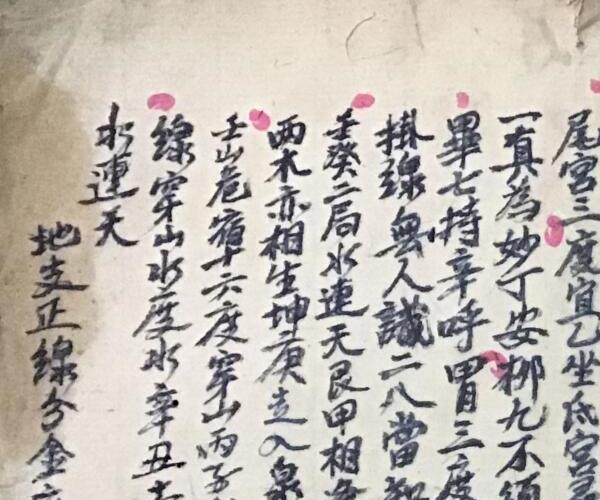 尾宮三度宜乙坐氐宮
一真為妙丁安柳九不須
畢七持辛呼胃三度
掛線無人識二八當知
壬癸二局水連天艮甲相
両水亦相生坤庚走入泉
壬山危宿十六度穿山丙子
線穿山水二度水辛丑
水連天
地支正線分金